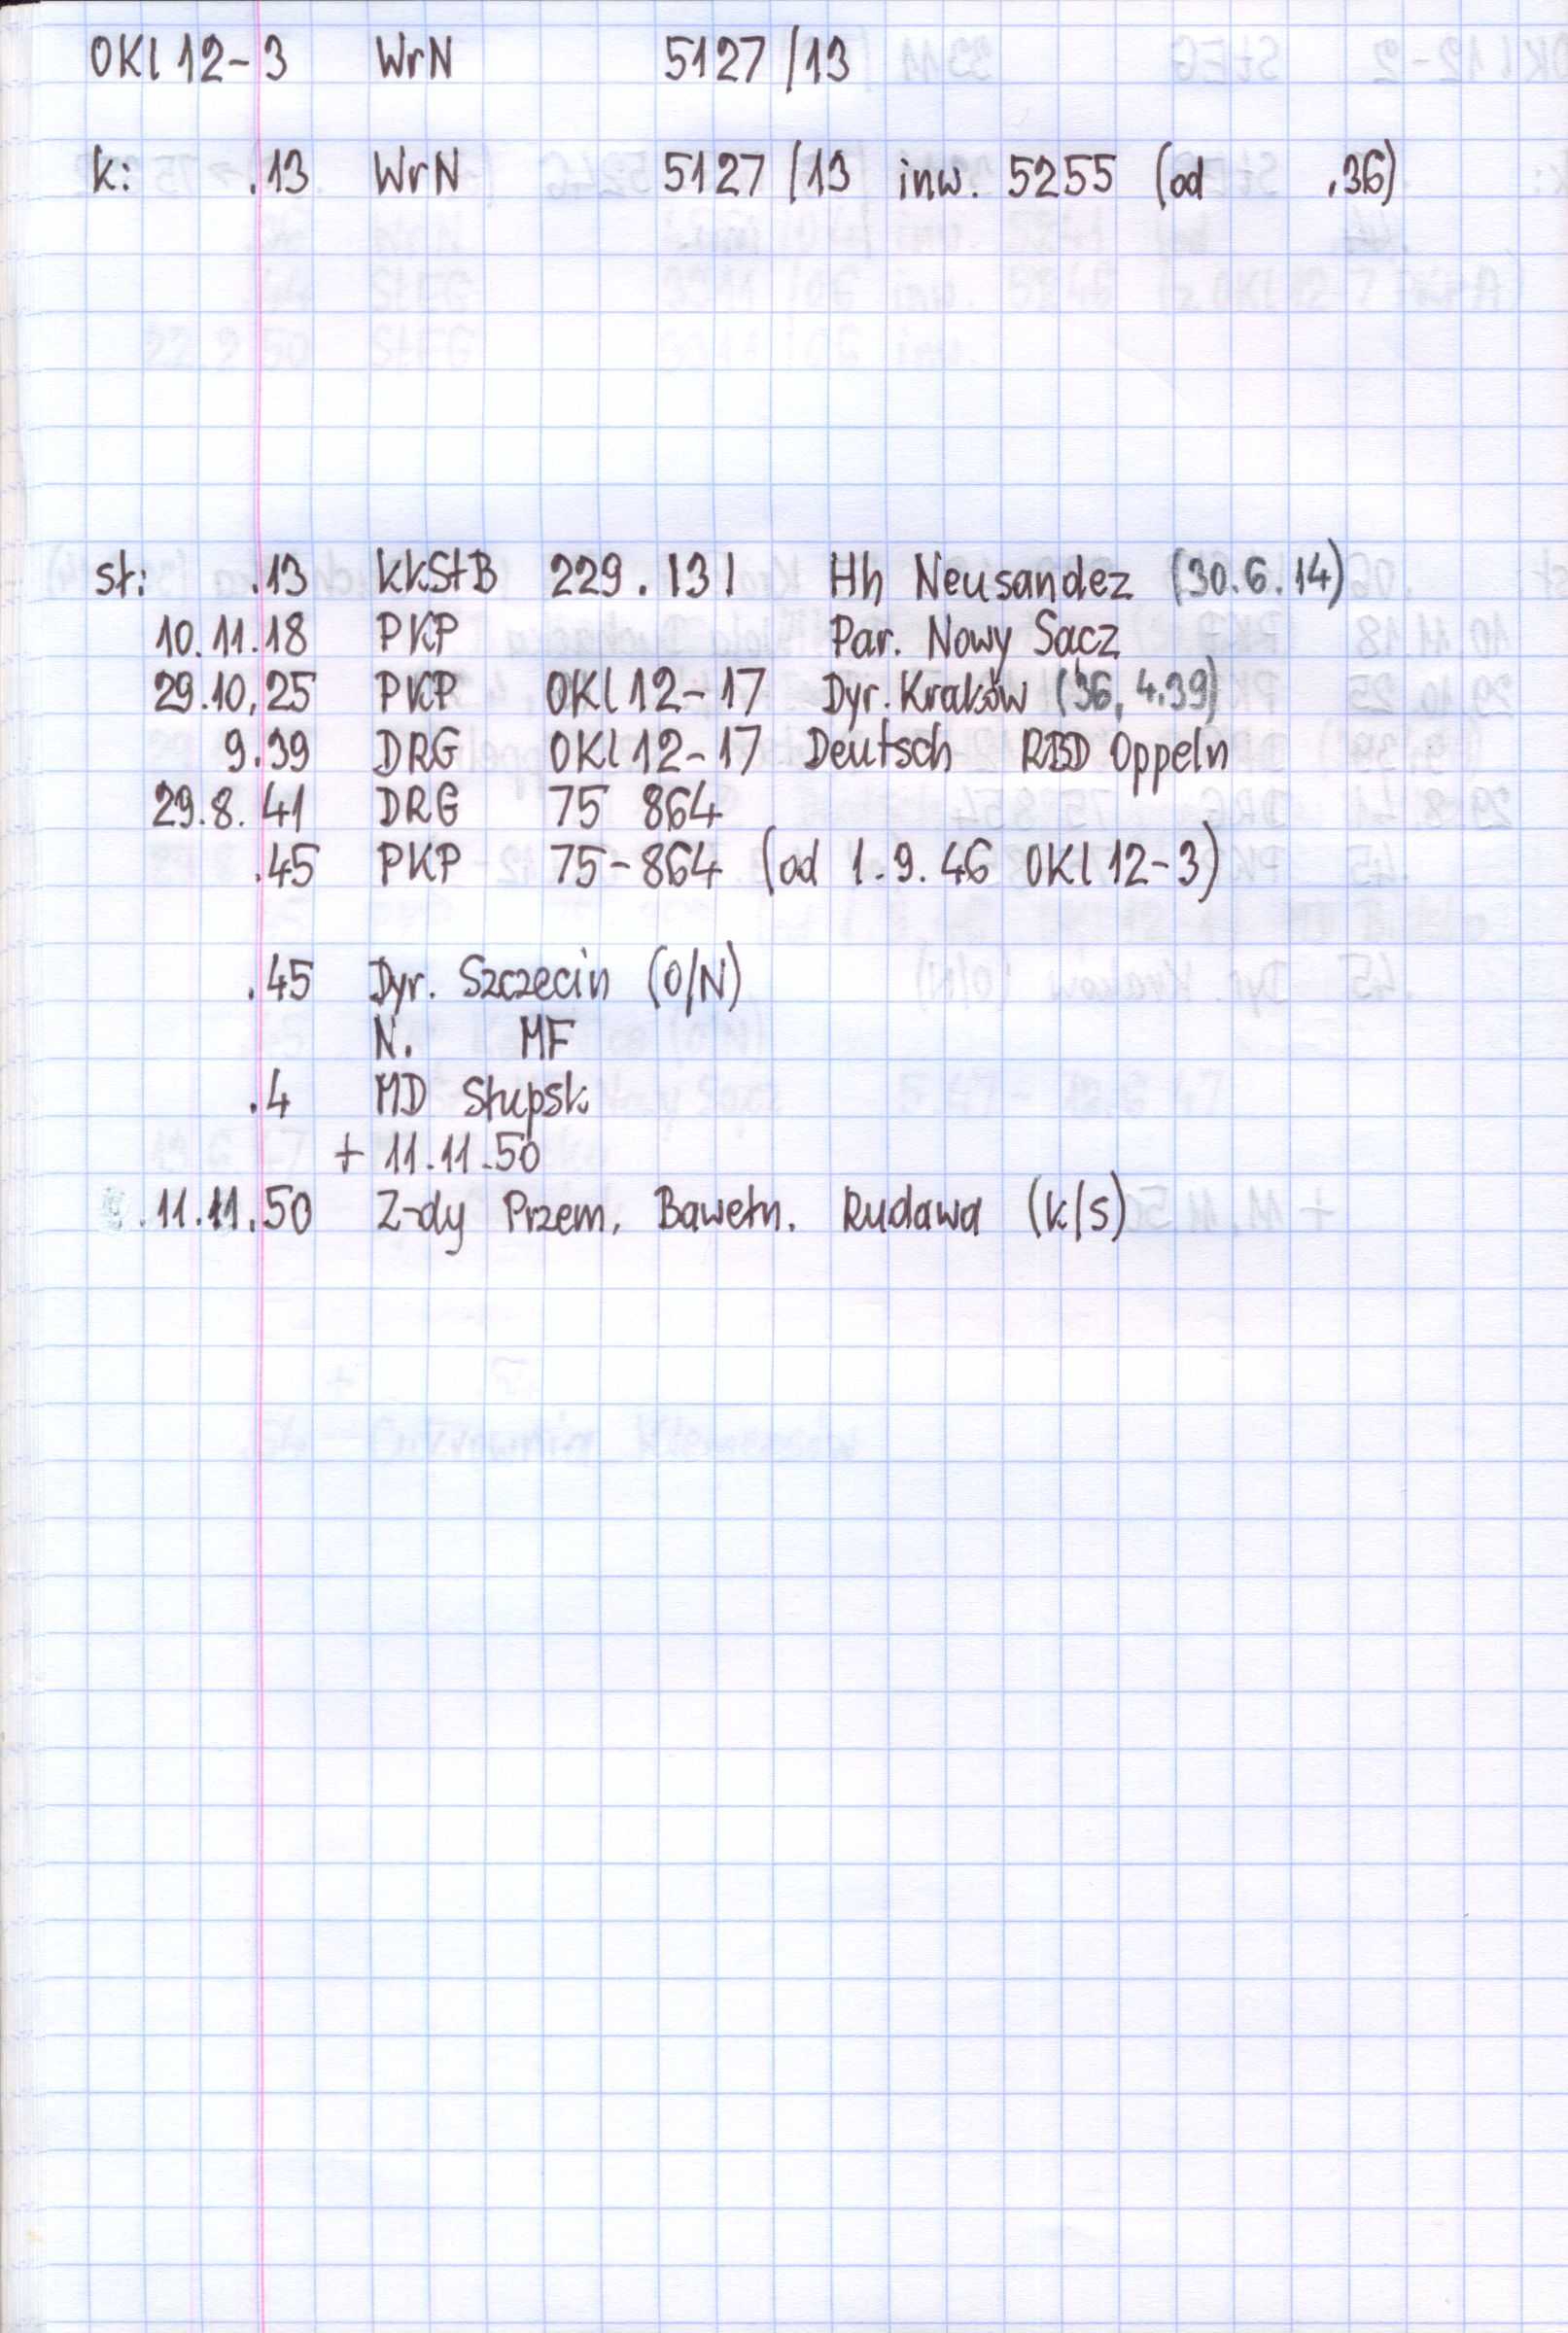 OKl 12-3 WrN 5127/13
k: .13 WrN 5127/13 inw. 5255 (od .36)
st: .13 kkStB 229.131 Hh Neusandez (30.6.14)
10.11.18 PKP Par. Nowy Sącz
29.10.25 PKP OKl 12-17 Dyr. Kraków (36, 4.39)
9.39 DRG OKl 12-17 Deutsch RBD Oppeln
29.8.41 DRG 75 864
.45 PKP 75-864 (od 1.9.46 OKl 12-3)
.45 Dyr. Szczecin (O/N)
N. MF
.4 MD Słupsk
+ 11.11.50
11.11.50 Z-dy Przem. Bawełn. Rudawa (k/s)